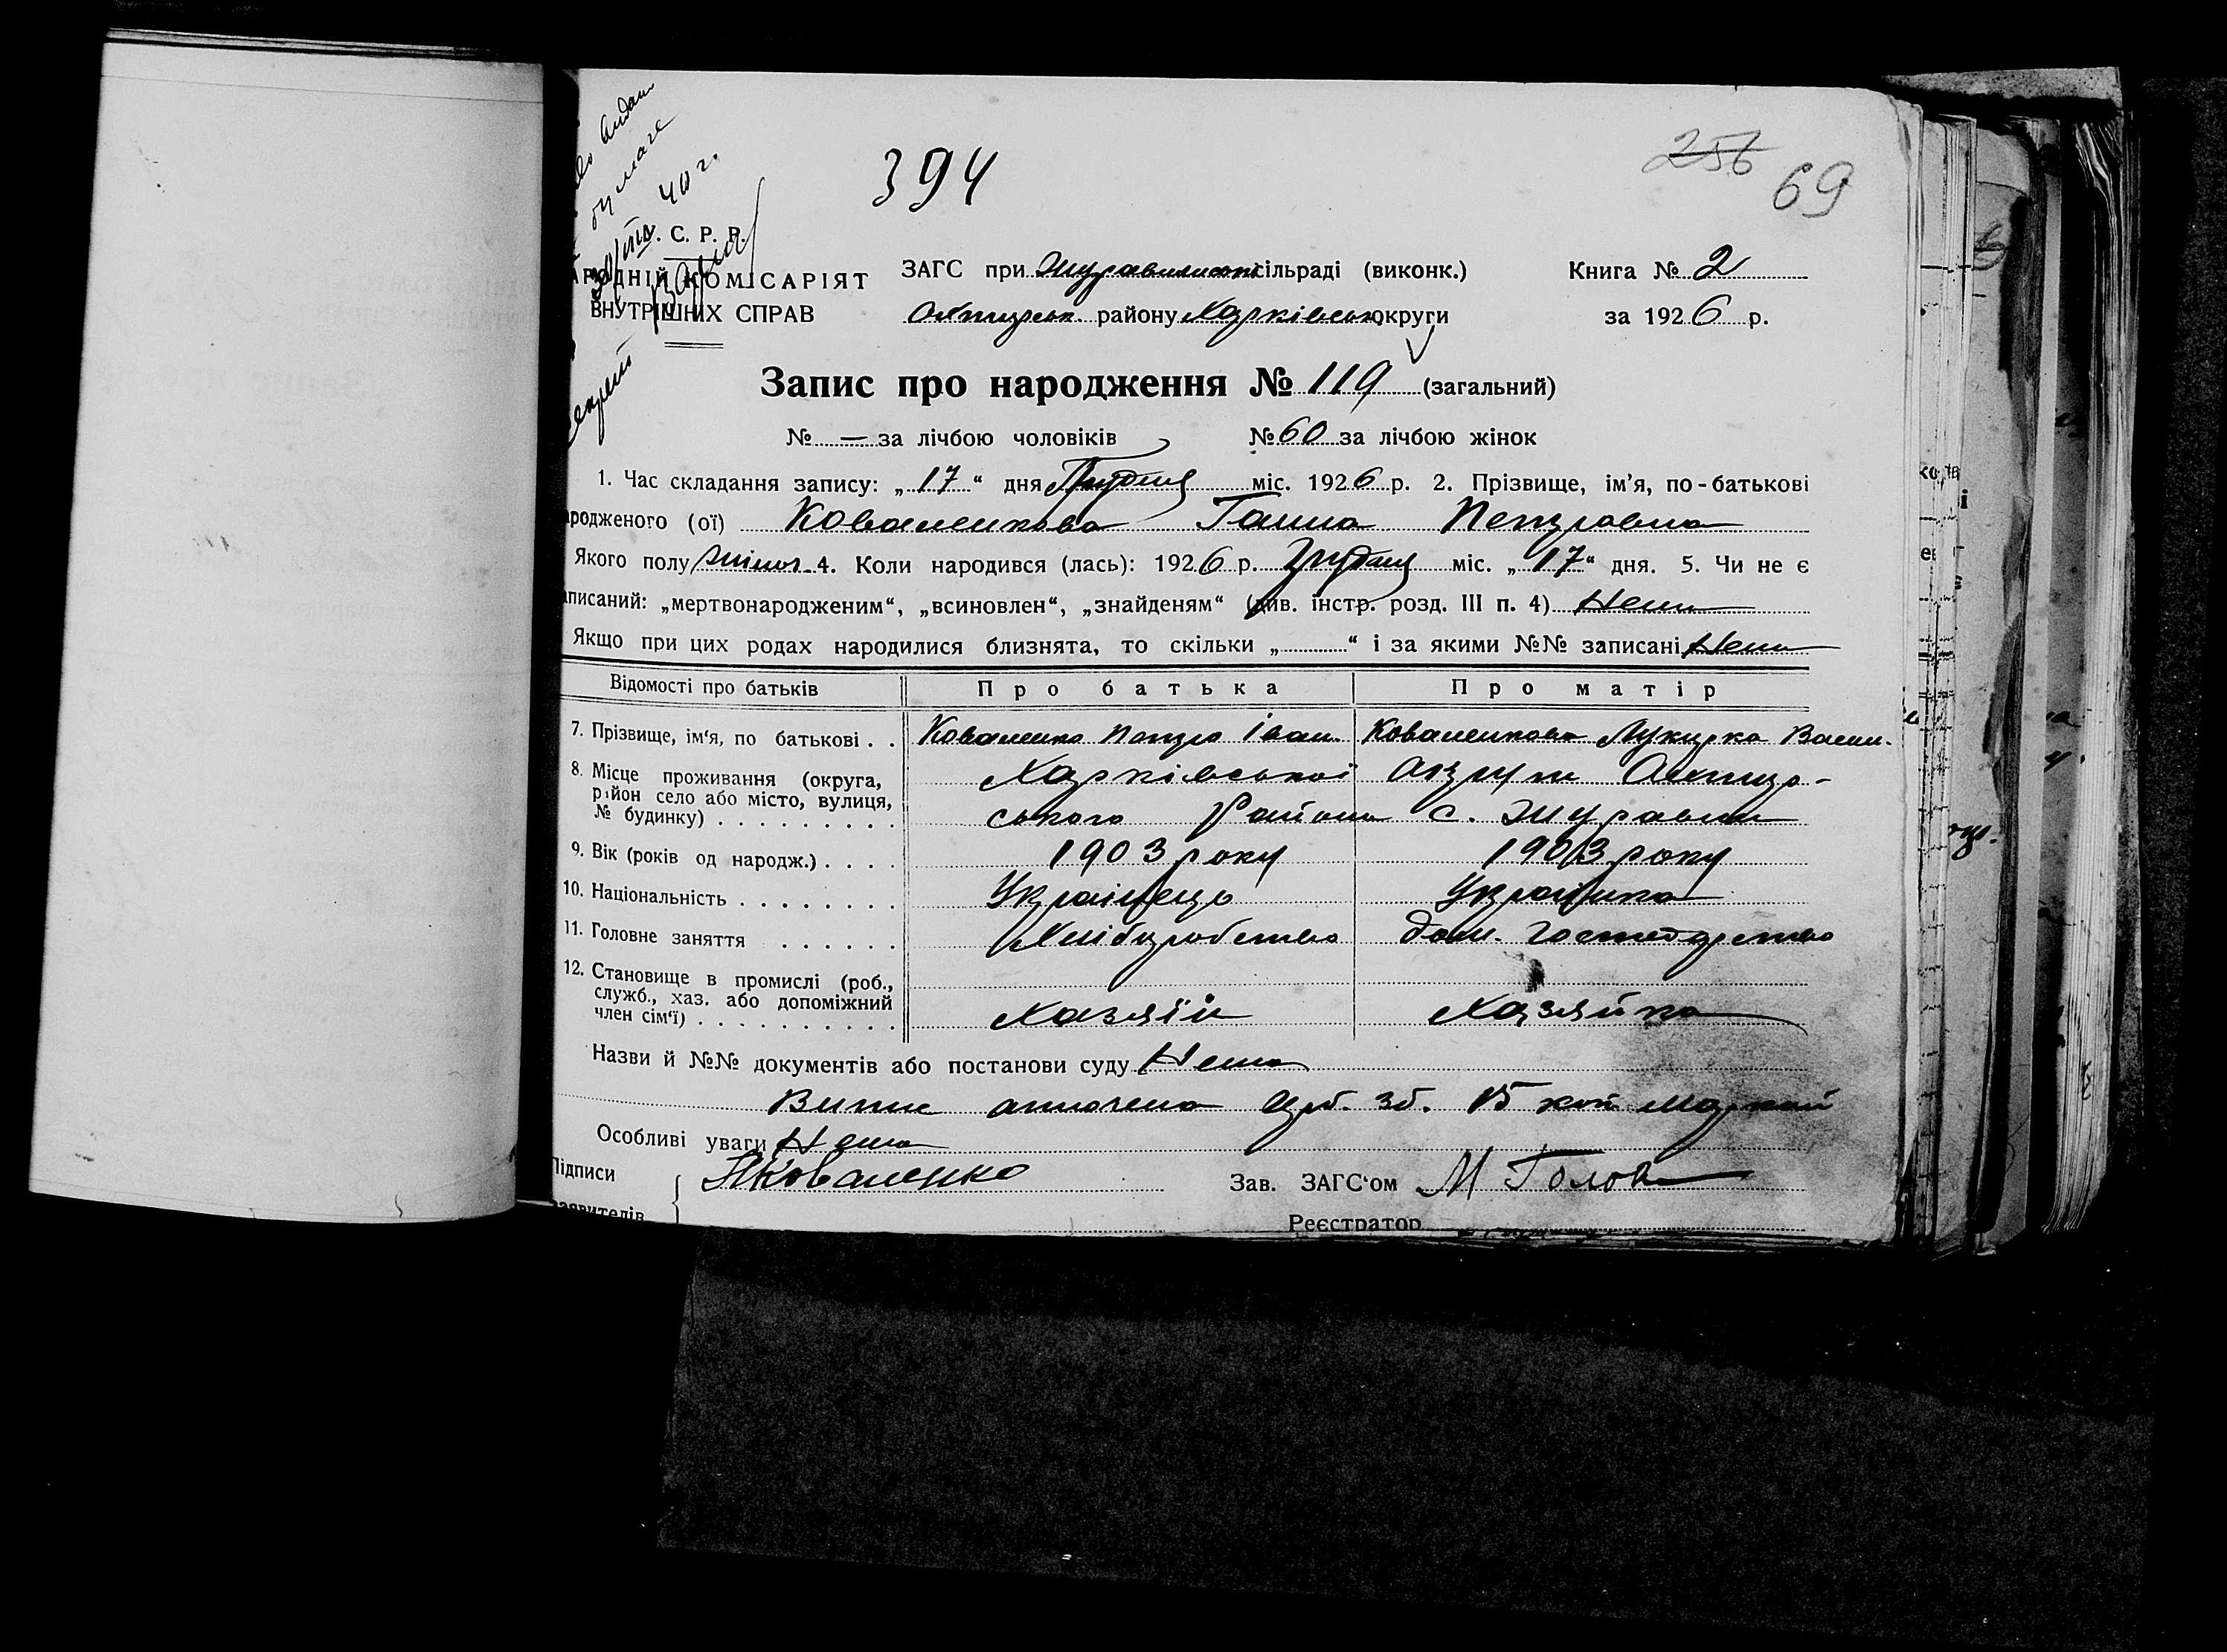 394
256 69
40 г.
С. Р. Р.
АРОДНІЙ КОМІСАРІЯТ
ВНУТРІШНІХ СПРАВ
ЗАГС при сільраді (виконк.)
району Харківськ. округи
Книга № 2
за 1926 р.
Запис про народження № 119 (загальний)
№ — за лічбою чоловіків № 60 за лічбою жінок
1. Час складання запису: „ 17 “ дня Грудня міс. 1926 р. 2. Прізвище, ім’я, по-батькові
ародженого (ої) Коваленкова Ганна Петровна
Якого полу жіноч. 4. Коли народився (лась): 1926 р. Грудня міс. „ 17 “ дня. 5. Чи не є
аписаний: „мертвонародженим“, „всиновлен“, „знайденям“ (див. інстр. розд. III п. 4) Нема
Якщо при цих родах народилися близнята, то скільки „ “ і за якими №№ записані Нема
Відомості про батьків Про батька Про матір
7. Прізвище, ім‘я, по батькові . . Коваленко Петро Іван. Коваленкова Лукирка Васил.
8. Місце проживання (округа, район село або місто, вулиця, № будинку) Харківської округи Охтир-
ського Району с. Журавни
9. Вік (років од народж.) . . . . 1903 року 1903 року
10. Національність . . . . . . . . Українець Українка
11. Головне заняття . . . . . . Хліборобство дом. господарство
12. Становище в промислі (роб., служб., хаз. або допоміжний член сім‘ї) . . . . . . . . . . Хазяїн Хазяйка
Назви й №№ документів або постанови суду Нема
Випис оплочено Грб. зб. 15 коп маркой
Особливі уваги Нема
Підписи Коваленко Зав. ЗАГС‘ом М. Голов
заявителів
Реєстратор